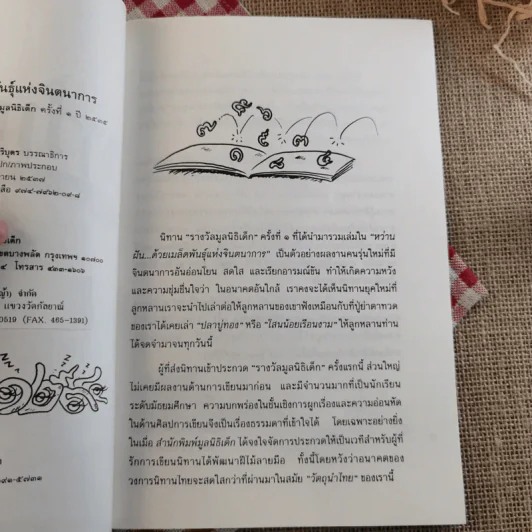 พันธุ์แห่งจินตนาการ
มูลนิธิเด็ก ครั้งที่ ๑ ปี ๒๕๓๕
บรรณาธิการ
ปก/ภาพประกอบ
๒๕๓๗
๙๗๔-๗๙๖๒-๐๙-๘
กรุงเทพฯ ๑๐๗๐๐
โทรสาร ๔๓๓-๑๖๐๖
จำกัด
แขวงวัดกัลยาณ์
0519 (FAX. 465-1391)
๗ ๕ ๖
๙ ๓
๑ ๘ ๔
นิทาน "รางวัลมูลนิธิเด็ก" ครั้งที่ ๑ ที่ได้นำมารวมเล่มใน "หว่าน
ฝัน...ด้วยเมล็ดพันธุ์แห่งจินตนาการ" เป็นตัวอย่างผลงานคนรุ่นใหม่ที่มี
จินตนาการอันอ่อนโยน สดใส และเรียกอารมณ์ขัน ทำให้เกิดความหวัง
และความชุ่มชื่นใจว่า ในอนาคตอันใกล้ เราคงจะได้เห็นนิทานยุคใหม่ที่
ลูกหลานเราจะนำไปเล่าต่อให้ลูกหลานของเขาฟังเหมือนกับที่ปู่ย่าตาทวด
ของเราได้เคยเล่า "ปลาบู่ทอง" หรือ "โสนน้อยเรือนงาม" ให้ลูกหลานท่าน
ได้จดจำมาจนทุกวันนี้
ผู้ที่ส่งนิทานเข้าประกวด "รางวัลมูลนิธิเด็ก" ครั้งแรกนี้ ส่วนใหญ่
ไม่เคยมีผลงานด้านการเขียนมาก่อน และมีจำนวนมากที่เป็นนักเรียน
ระดับมัธยมศึกษา ความบกพร่องในชั้นเชิงการผูกเรื่องและความอ่อนหัด
ในด้านศิลปการเขียนจึงเป็นเรื่องธรรมดาที่เข้าใจได้ โดยเฉพาะอย่างยิ่ง
ในเมื่อ สำนักพิมพ์มูลนิธิเด็ก ได้จงใจจัดการประกวดให้เป็นเวทีสำหรับผู้ที่
รักการเขียนนิทานได้พัฒนาฝีไม้ลายมือ ทั้งนี้โดยหวังว่าอนาคตของ
วงการนิทานไทยจะสดใสกว่าที่ผ่านมาในสมัย "วัตถุนำไทย" ของเรานี้